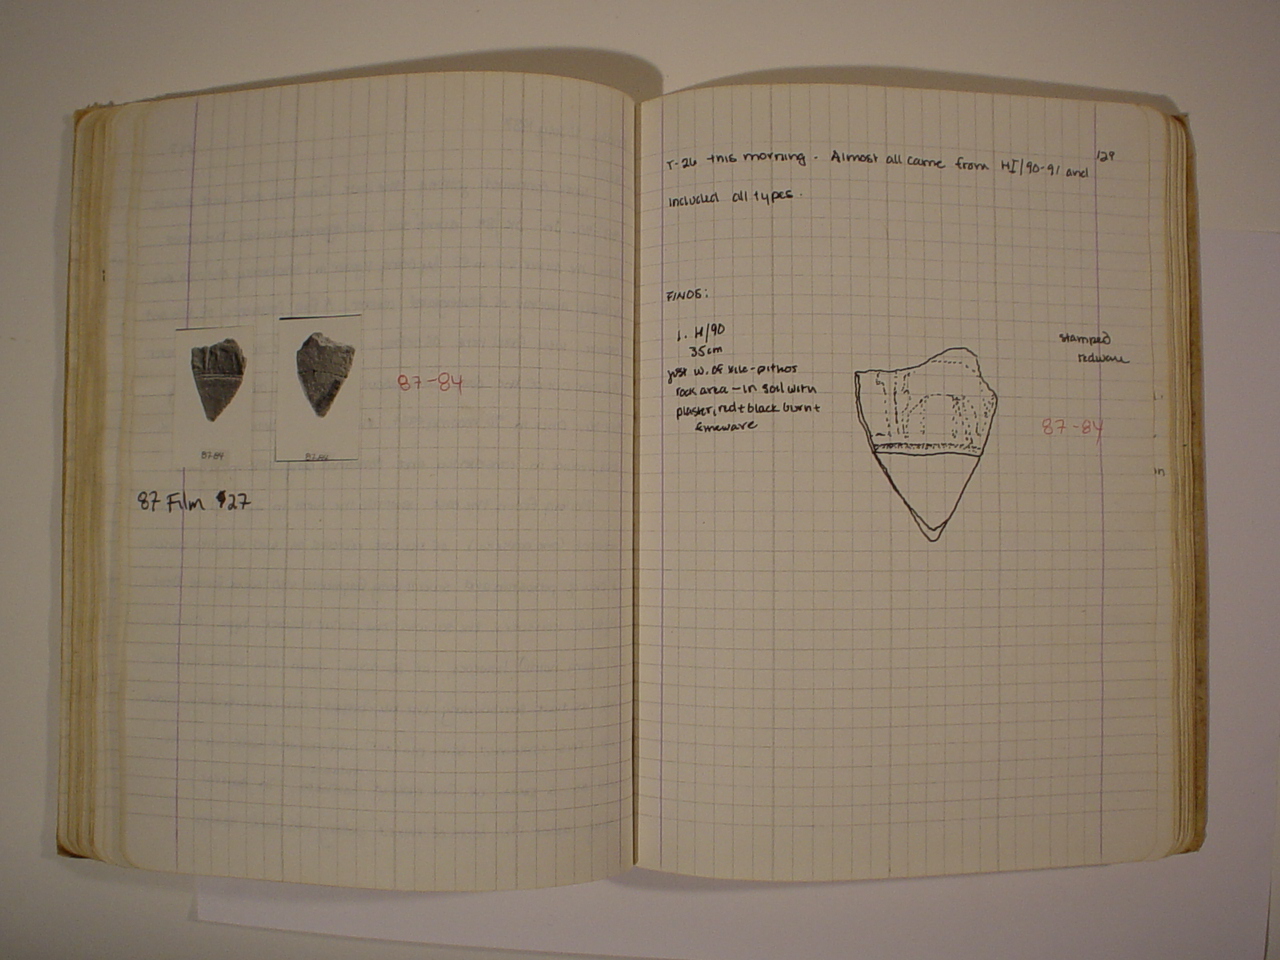 87-84
87-84
87-84
87 Film 27
129
T-26 this morning. Almost all came from HI/90-91 and
included all types.
FINDS:
1. H/90
35cm
just w. of tile-pithos
rock area - in soil with
plaster, red + black burnt
fineware
stamped
redware
87-84